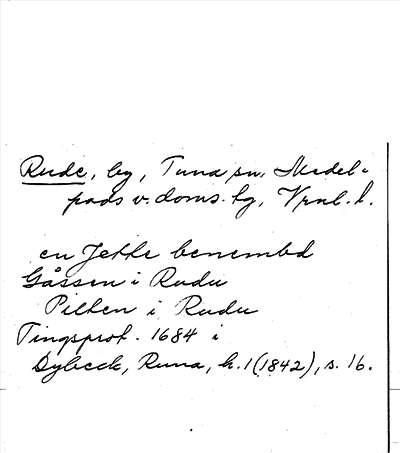 Rude, by, Tuna sn, Medel-
pads v. doms. hg, Vrnl. l.
en Jette benembd
Gåssen i Rudu
Pilten i Rudu
Tingsprot. 1684 i
Dybeck, Runa, h. 1 (1842), s. 16.